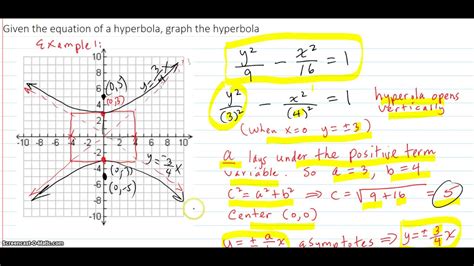 Given the equation of a hyperbola, graph the hyperbola
Example 1:
10
8
6
4
2
-10 -8 -6 -4 -2 2 4 6 8 10
-2
-4
-6
-8
(0,5)
(0,3)
y=3/4 x
y=-3/4 x
(0,-5)
y²/9 - x²/16 = 1
y²/(3)² - x²/(4)² = 1
hyperola opens
vertically
(when x=0 y=±3)
a lays under the positive term
variable. So a=3, b=4
c²=a²+b² ⇒ c=√9+16 = 5
Center (0,0)
y=± a/ x asymptotes ⇒ y=±3/4 x
Screencast-O-Matic.com